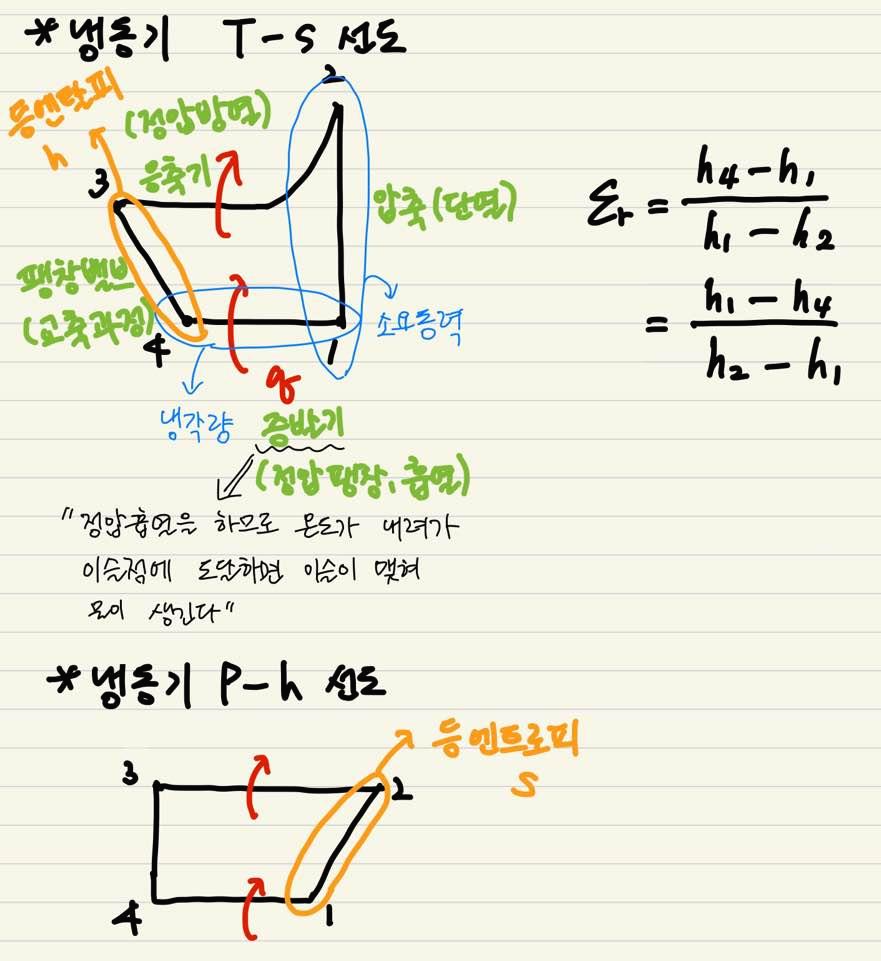 *냉동기 T-s 선도
2
등엔탈피
h
(정압방열)
응축기
3
압축(단열)
팽창밸브
(교축과정)
4
1
소요동력
q
냉각량
증발기
(정압팽창, 흡열)
εr = (h4-h1)/(h1-h2)
= (h1-h4)/(h2-h1)
"정압흡열을 하므로 온도가 내려가
이슬점에 도달하면 이슬이 맺혀
물이 생긴다"
*냉동기 P-h 선도
등엔트로피
S
3
2
4
1